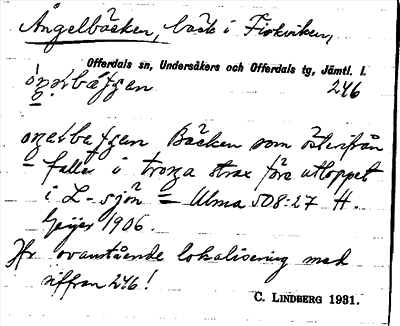 Ångelbäcken, bäck i Fiskviken,
Offerdals sn, Undersåkers och Offerdals tg, Jämtl. l.
246
Bäcken som österifrån
faller i tronga strax före utloppet
i L-sjön = Ulma 508:27 H.
Geijer 1906.
Hr ovanstående lokalisering med
siffran 246!
C. LINDBERG 1931.